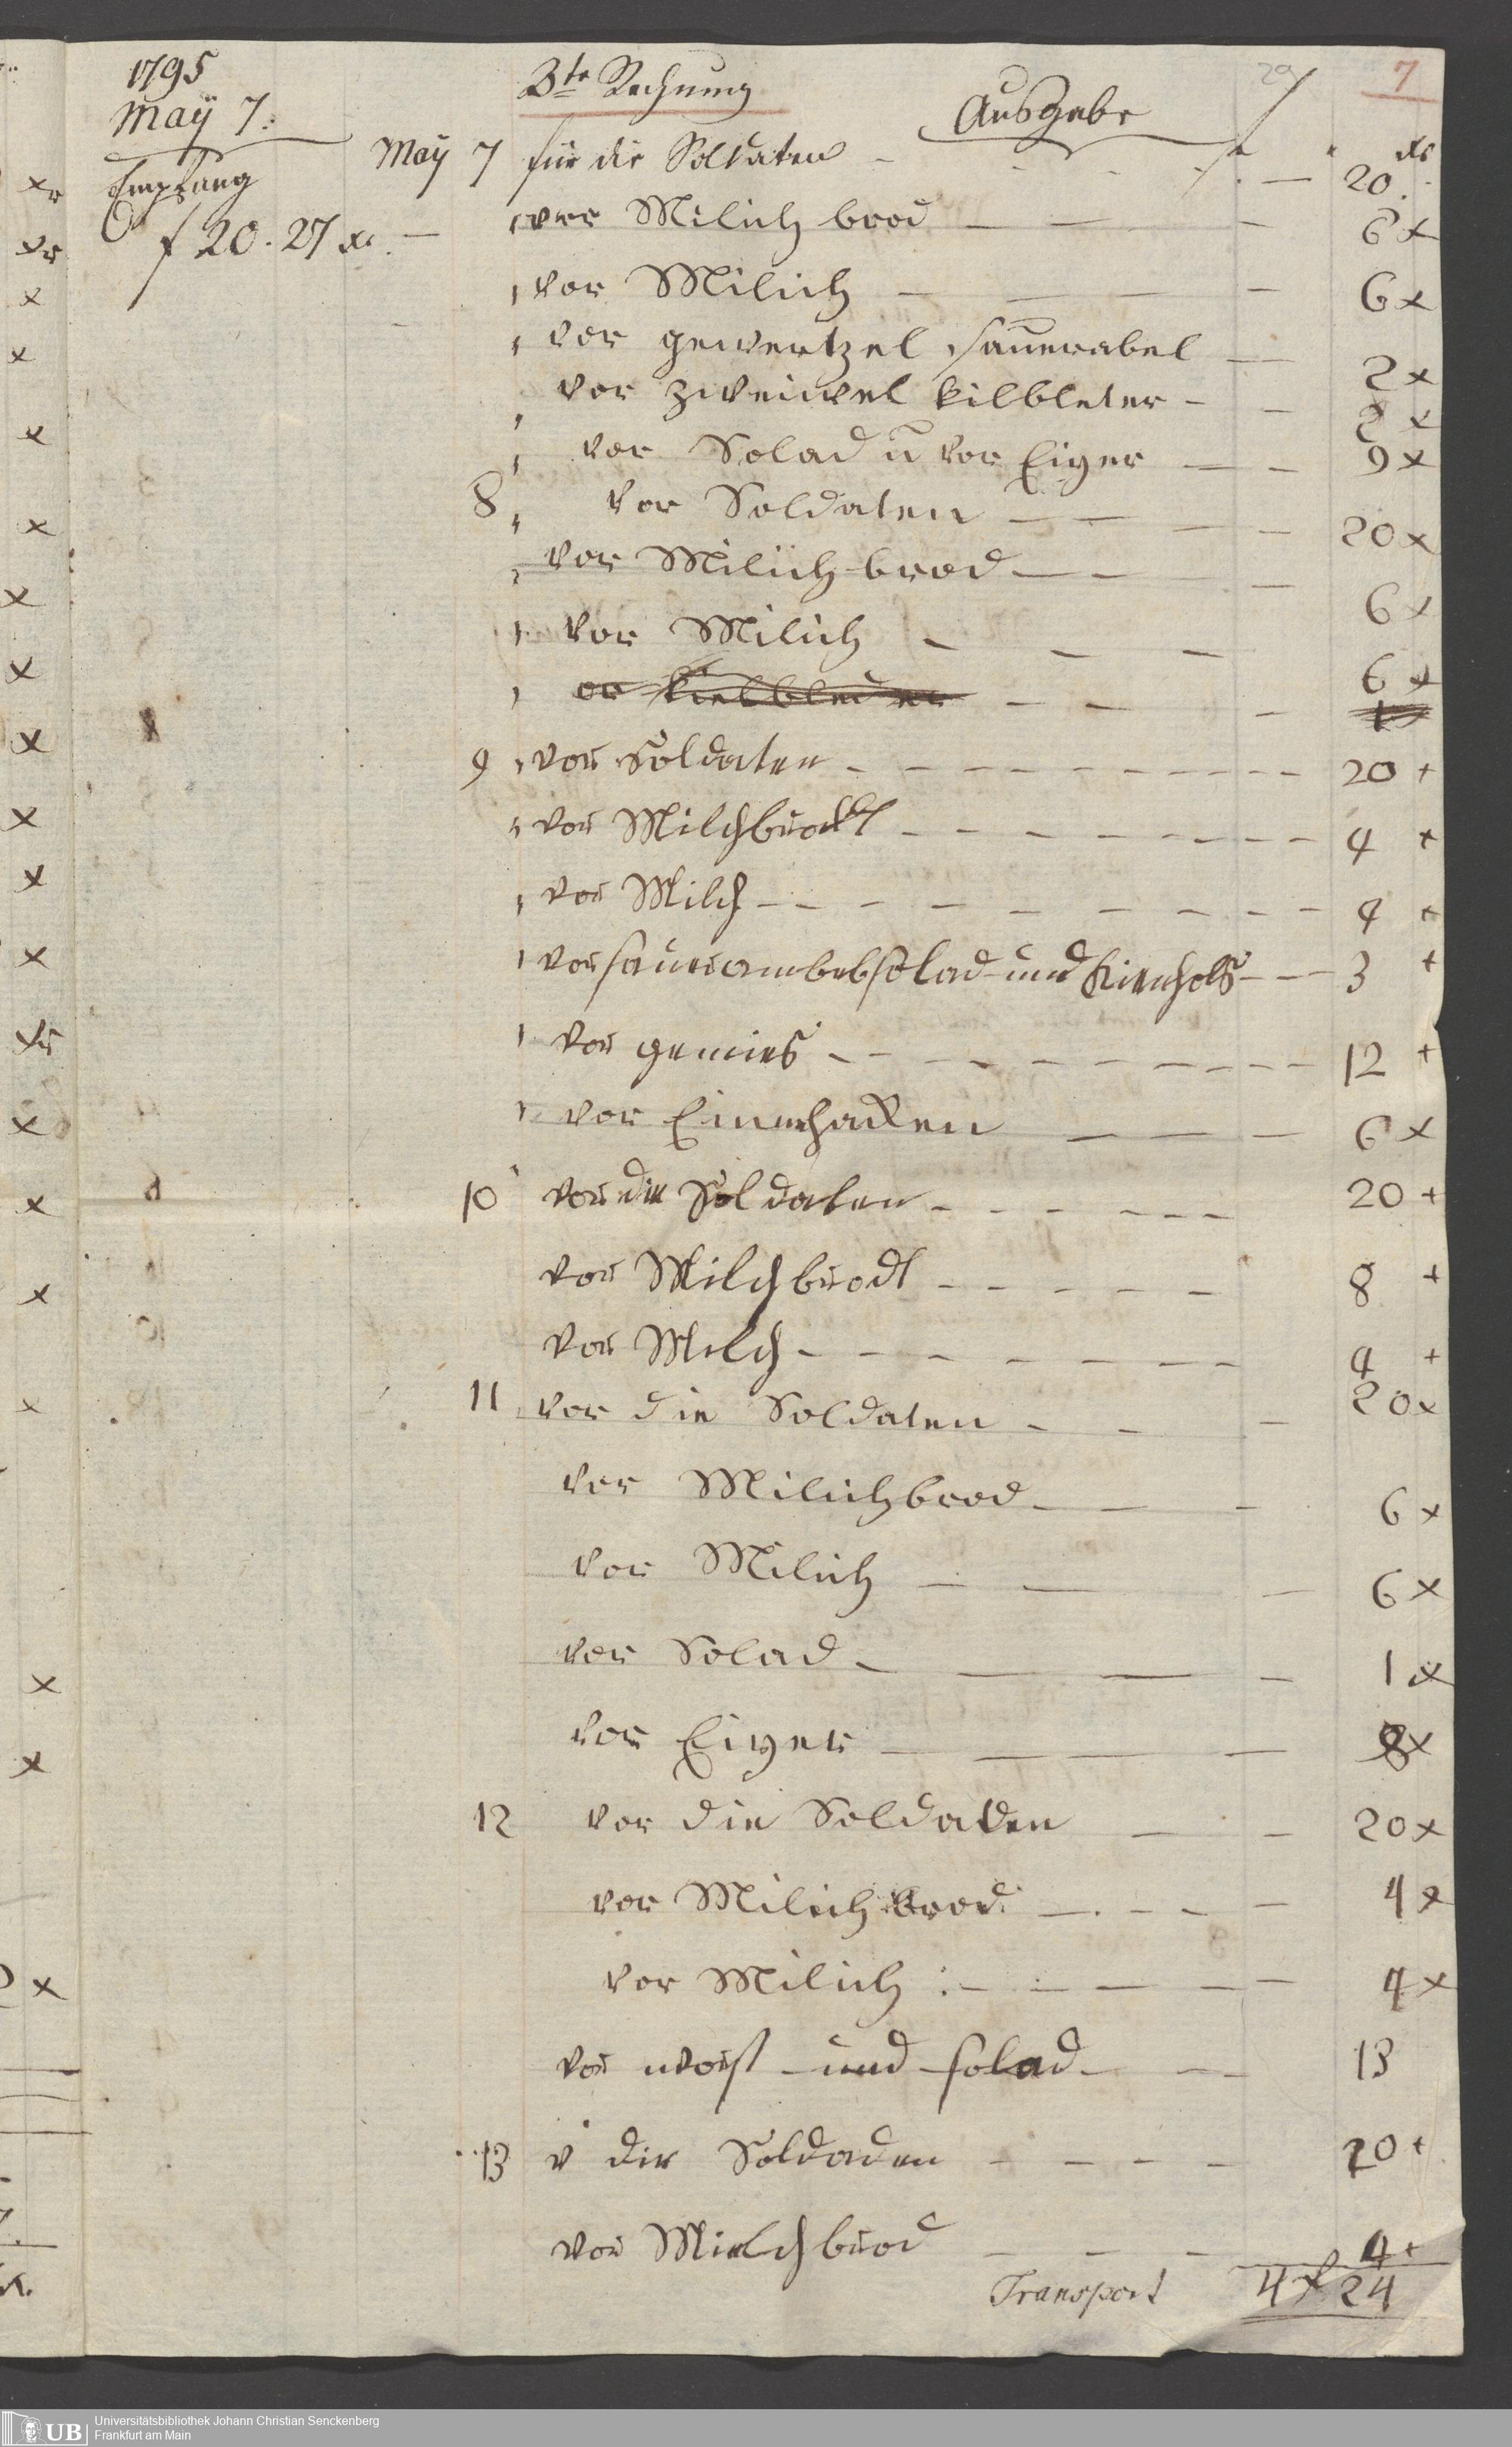 1795
3te Rechnung
29
7
Maÿ 7:
Ausgabe
f
Empfang
f 20. 27 xr. —
xr
May 7 für die Soldaten - - - - 20.
vor Milich brod — — — 6 x
vor Milich — — — — 6 x
vor gewertzel sauerabel — — 2 x
vor zweiwel kilbleter - - 2 x
vor Solad u vor Eiyer — — 9 x
8 vor Soldaten — — — — 20 x
vor Milich brod — — — 6 x
vor Milich — — — 6 x
or kielbleder — — — 1
9 vor Soldaten - - - - - - 20 +
vor Milchbrodt - - - - - - 4 +
vor Milch - - - - - - - 4 +
vor saurambel solad und Kienholz - - - 3 +
vor gemies - - - - - - - 12 +
vor Einmhacken — — — 6 x
10 vor die Soldaten - - - - - - 20 +
vor Milchbrodt - - - - - 8 +
vor Milch - - - - - - - 4 +
11 vor die Soldaten - - — 20 x
vor Milichbrod — — - 6 x
vor Milich — — — 6 x
vor Solad — — — — 1 x
vor Eiyer — — — — 8 x
12 vor die Soldaten — — 20 x
vor Milich brod — - - — 4 x
vor Milich : — — — — — 4 x
vor worst und solad — — 13
13 v die Soldaden - - - - 20 +
vor Mielchbrod — — — 4 +
Transport 4 f 24
UB
Universitätsbibliothek Johann Christian Senckenberg
Frankfurt am Main